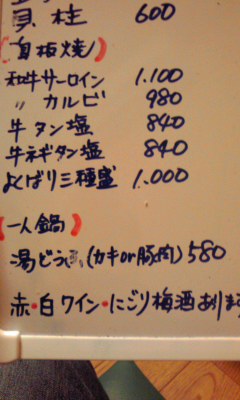 貝柱 600
【陶板焼】
和牛サーロイン 1.100
〃 カルビ 980
牛タン塩 840
牛ネギタン塩 840
よくばり三種盛 1.000
【一人鍋】
湯どうふ(カキor豚肉) 580
赤・白ワイン・にごり梅酒あります